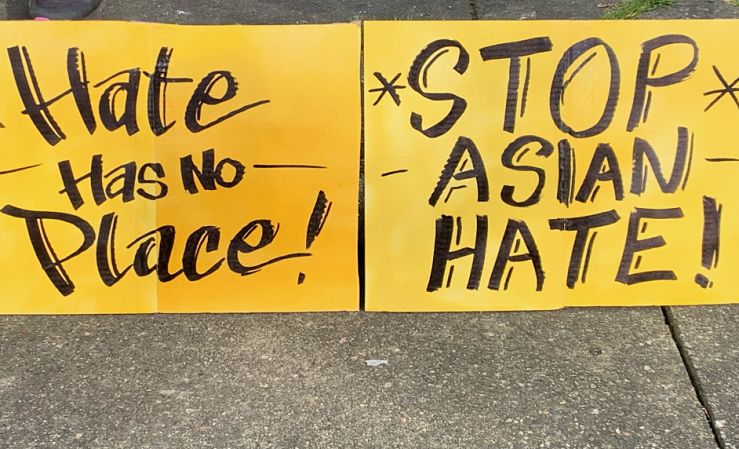 Hate
Has No
Place!
*STOP*
ASIAN
HATE!